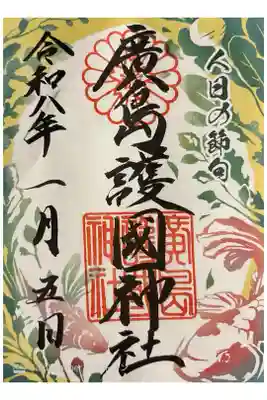 人日の節句
廣島護國神社
廣島護國神社
令和八年一月五日